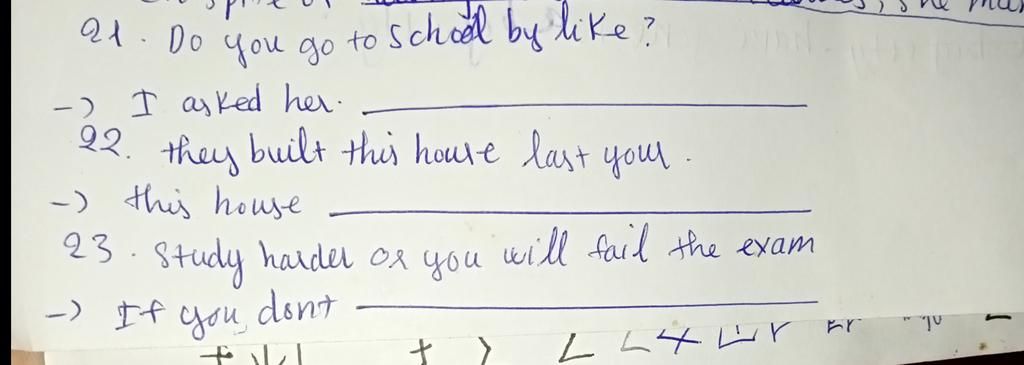 21. Do you go to school by like?
-> I asked her.
22. they built this house last your.
-> this house
23. Study harder or you will fail the exam
-> If you dont